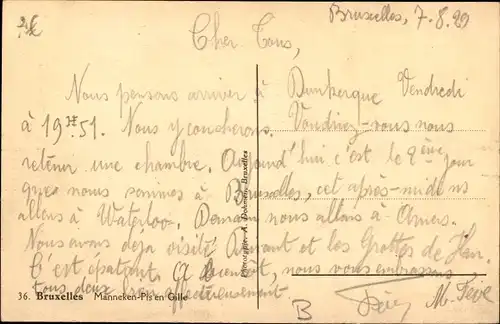 Bruxelles, 7.8.29
Cher Tous,
Nous pensons arriver à Dunkerque Vendredi
à 19 H 51. Nous y coucherons. Voudriez-vous nous
retenir une chambre. Aujourd'hui c'est le 2ème jour
que nous sommes à Bruxelles, cet après-midi ns
allons à Waterloo. Demain nous allons à Anvers.
Nous avons déjà visité Dinant et les Grottes de Han.
C'est épatant. A bientôt, nous vous embrassons
tous deux bien affectueusement.
36. Bruxelles Manneken-Pis en Gille
B